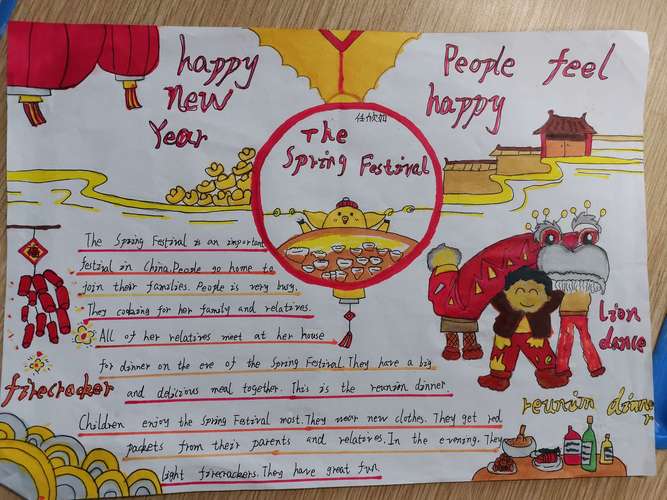 happy
new
Year
People feel
happy
The
Spring Festival
The Spring Festival is an important
festival in China. People go home to
join their families. People is very busy.
They cooking for her family and relatives.
All of her relatives meet at her house
for dinner on the eve of the Spring Festival. They have a big
and delicious meal together. This is the reunion dinner.
Children enjoy the Spring Festival most. They wear new clothes. They get red
packets from their parents and relatives. In the evening. They
light firecrackers. They have great fun.
firecracker
Lion
dance
reunion dinner